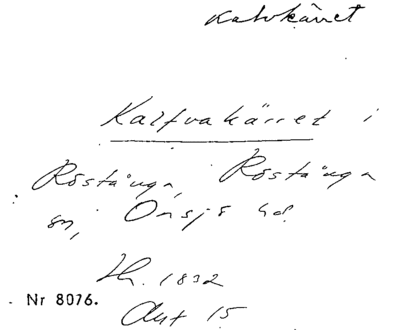 Kalvkärret
Kalfvakärret i
Röstånga, Röstånga
sn, Onsjö hd.
Hr. 1832
Nr 8076.
Akt 15